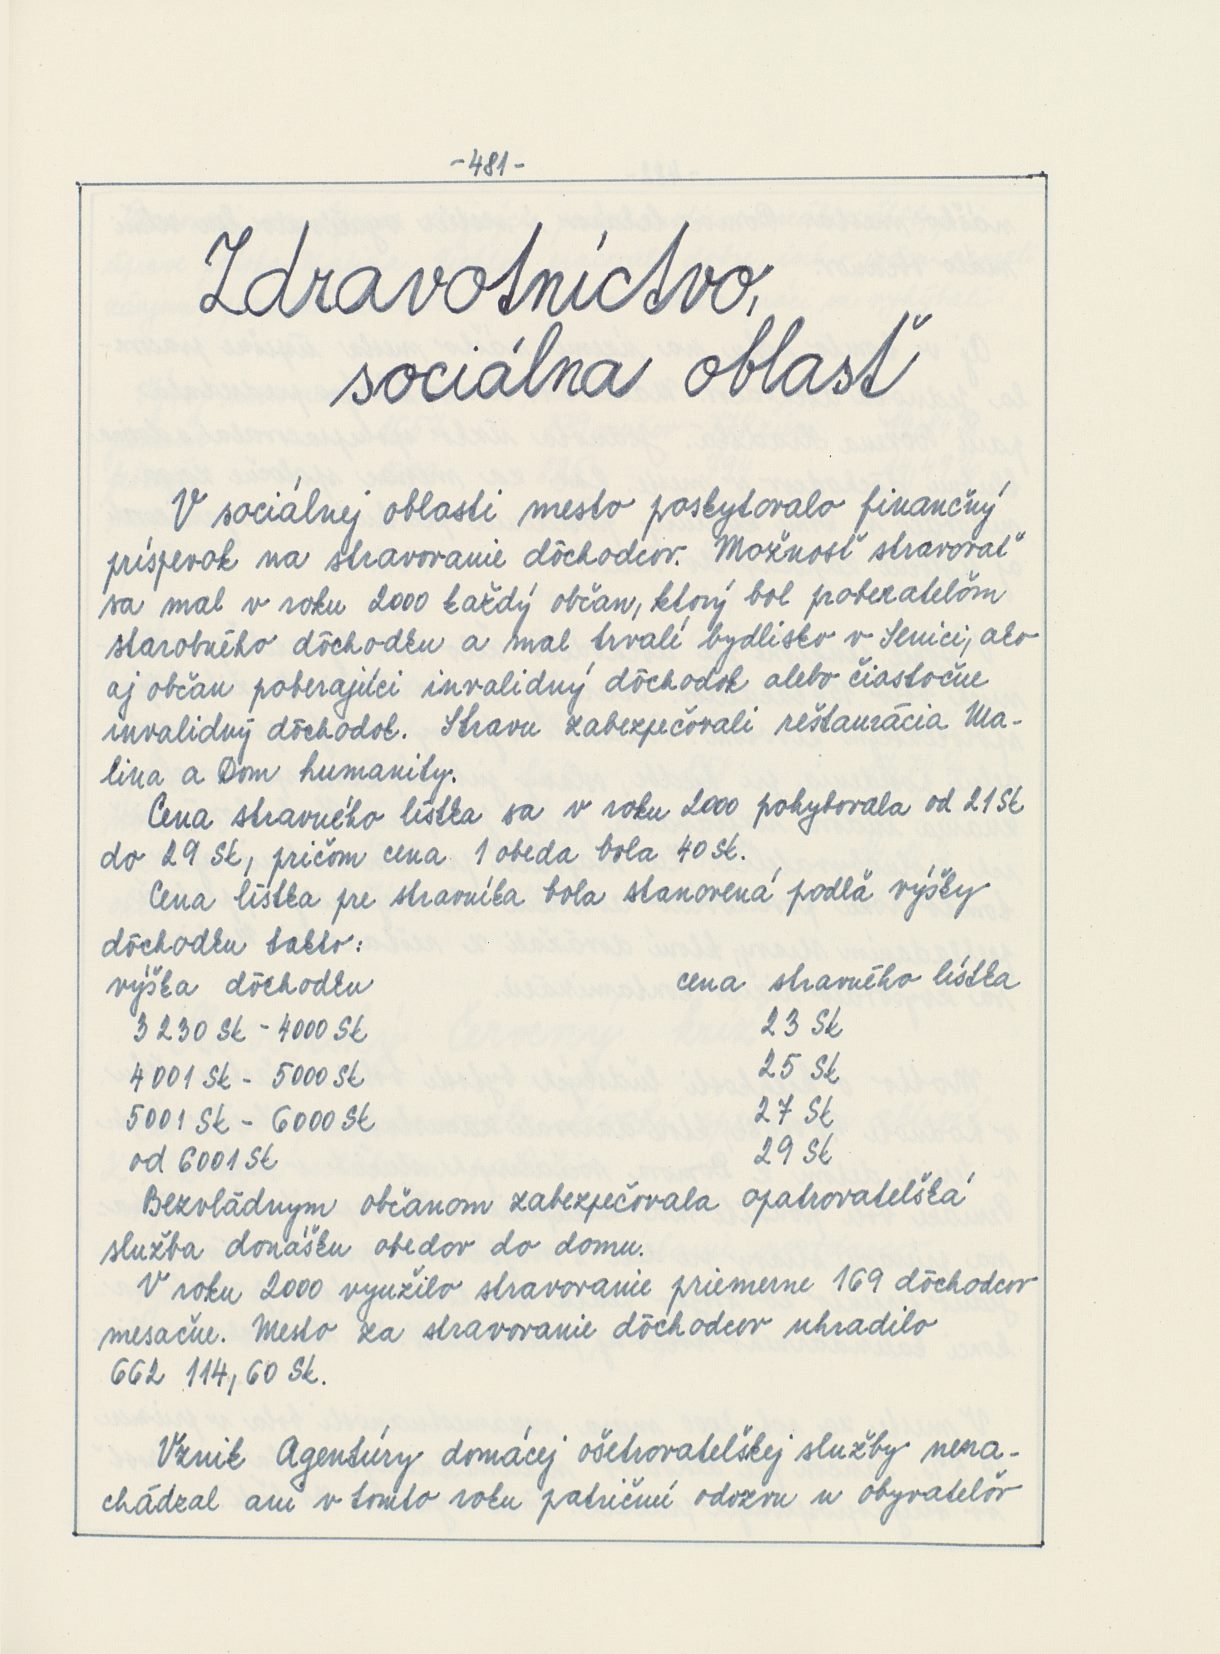 -481-
Zdravotníctvo,
sociálna oblasť
V sociálnej oblasti mesto poskytovalo finančný
príspevok na stravovanie dôchodcov. Možnosť stravovať
sa mal v roku 2000 každý občan, ktorý bol poberateľom
starobného dôchodku a mal trvalí bydlisko v Senici, ako
aj občan poberajúci invalidný dôchodok alebo čiastočne
invalidný dôchodok. Stravu zabezpečovali reštaurácia Ma-
lina a Dom humanity.
Cena stravného lístka sa v roku 2000 pohybovala od 21 Sk
do 29 Sk, pričom cena 1 obeda bola 40 Sk.
Cena lístka pre stravníka bola stanovená podľa výšky
dôchodku takto:
výška dôchodku cena stravného lístka
3 230 Sk - 4000 Sk 23 Sk
4 001 Sk - 5000 Sk 25 Sk
5001 Sk - 6000 Sk 27 Sk
od 6001 Sk 29 Sk
Bezvládnym občanom zabezpečovala opatrovateľská
služba donášku obedov do domu.
V roku 2000 využilo stravovanie priemerne 169 dôchodcov
mesačne. Mesto za stravovanie dôchodcov uhradilo
662 114,60 Sk.
Vznik Agentúry domácej ošetrovateľskej služby nena-
chádzal ani v tomto roku patričnú odozvu u obyvateľov